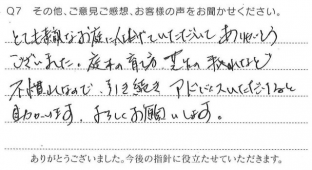 Q7 その他、ご意見ご感想、お客様の声をお聞かせください。
とても素敵なお庭に仕上げていただいて ありがとう
ございました。庭木の育て方、芝生の手入れなど
不慣れなので、引き続き アドバイスいただけると
助かります。よろしくお願いします。
ありがとうございました。今後の指針に役立たせていただきます。